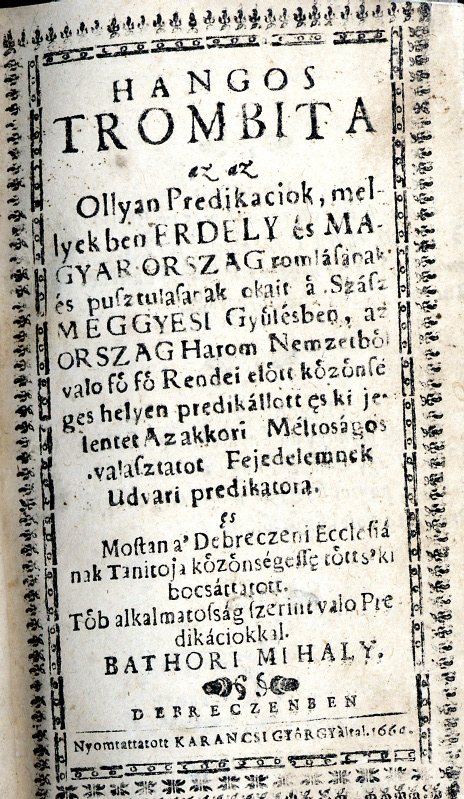 HANGOS
TROMBITA
az az
Ollyan Predikaciok, mel-
lyekben ERDELY és MA-
GYAR-ORSZAG romlásának
és pusztulasanak okait à Szász
MEGGYESI Gyülésben, az
ORSZAG Harom Nemzetböl
valo fö fö Rendei elött közönsé
ges helyen predikállott és ki je-
lentet Az akkori Méltoságos
valasztatot Fejedelemnek
Udvari predikatora.
és
Mostan a' Debreczeni Ecclesiá
nak Tanitoja közönségessé tött s' ki
bocsáttatott.
Töb alkalmatosság szerint valo Pre
dikáciokkal.
BATHORI MIHALY.
DEBRECZENBEN
Nyomtattatott KARANCSI GYÖRGY által.